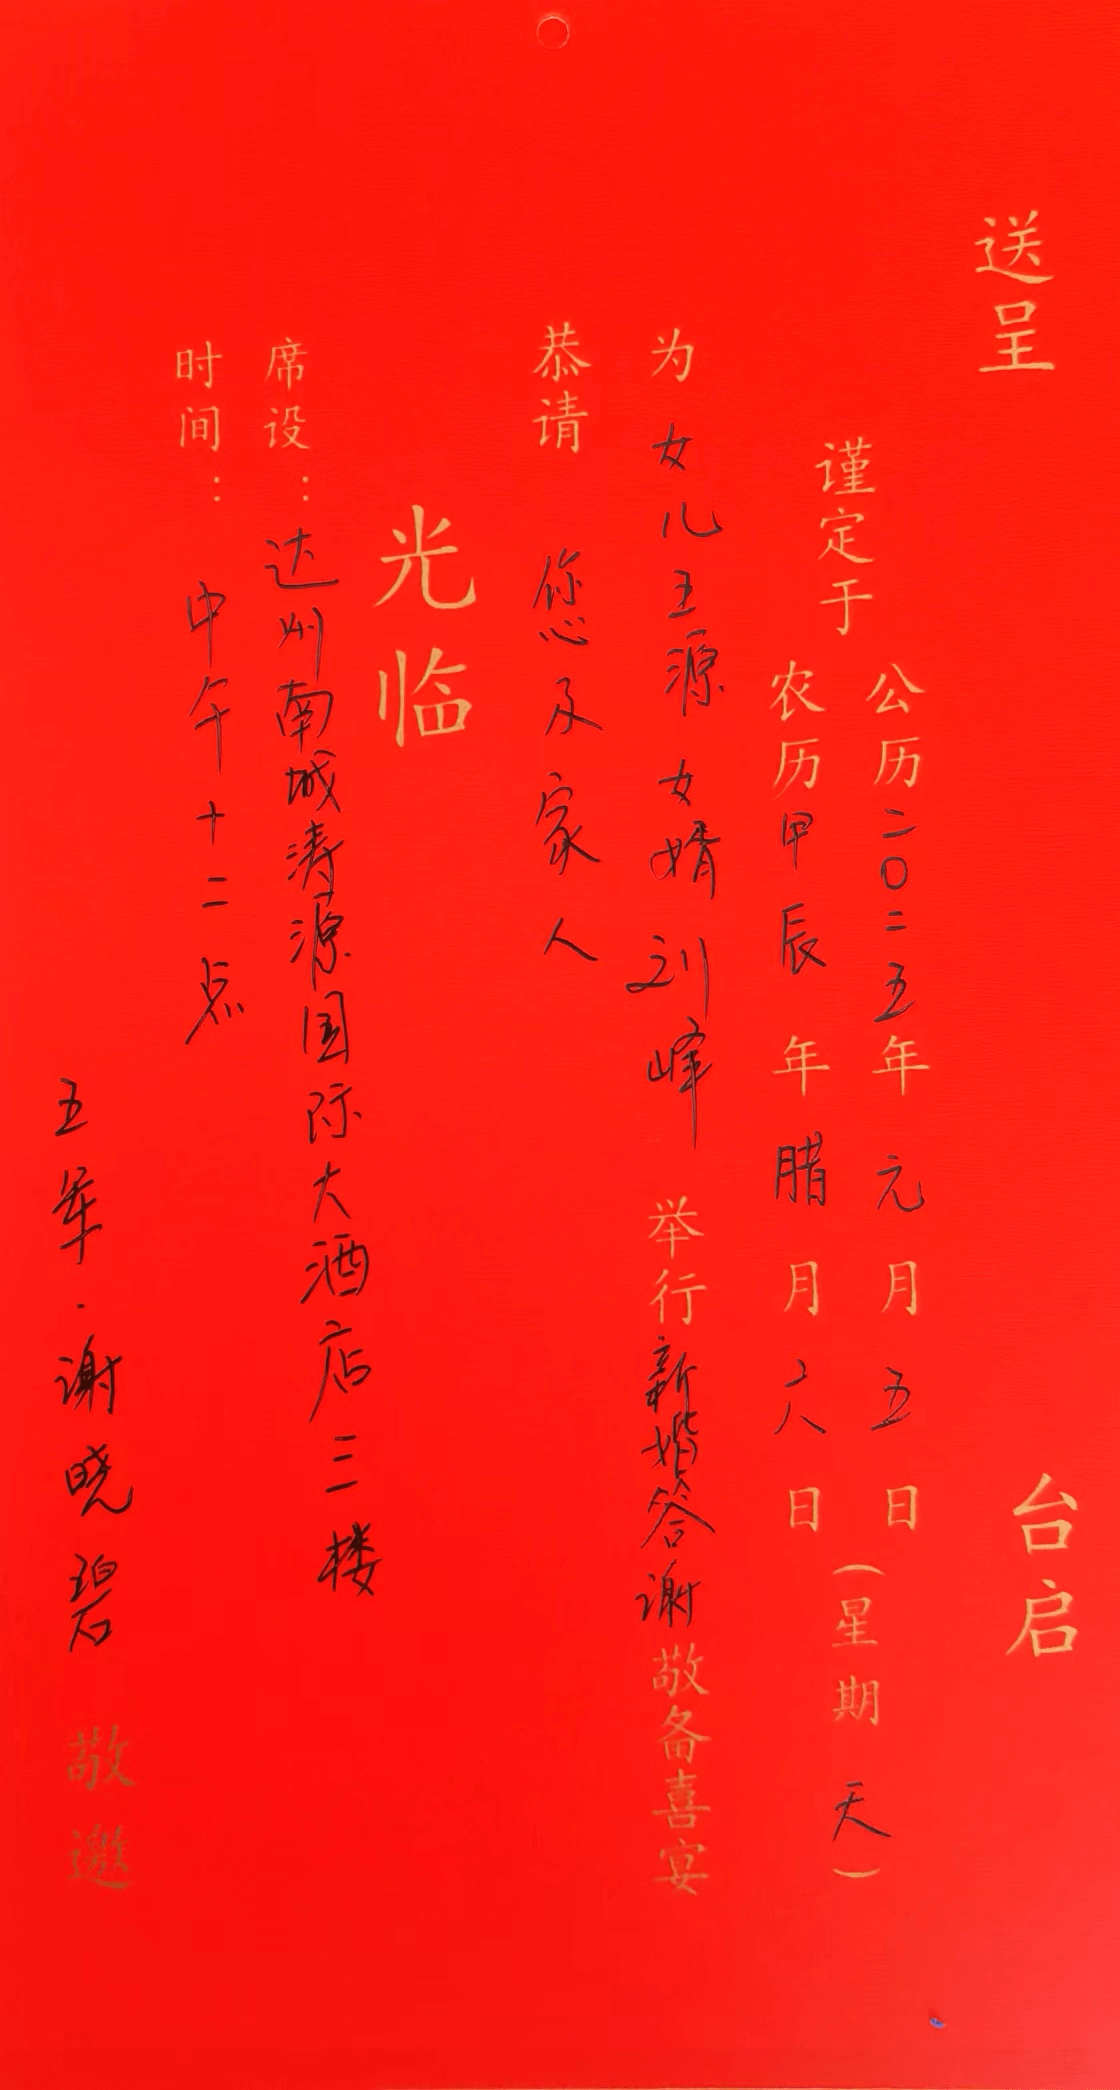 送呈 台启
谨定于
公历二〇二五年元月五日
农历甲辰年腊月六日
（星期天）
为女儿王源女婿刘峰举行新婚答谢敬备喜宴
恭请 您及家人
光临
席设：达州南城涛源国际大酒店三楼
时间：中午十二点
王军·谢晓碧 敬邀